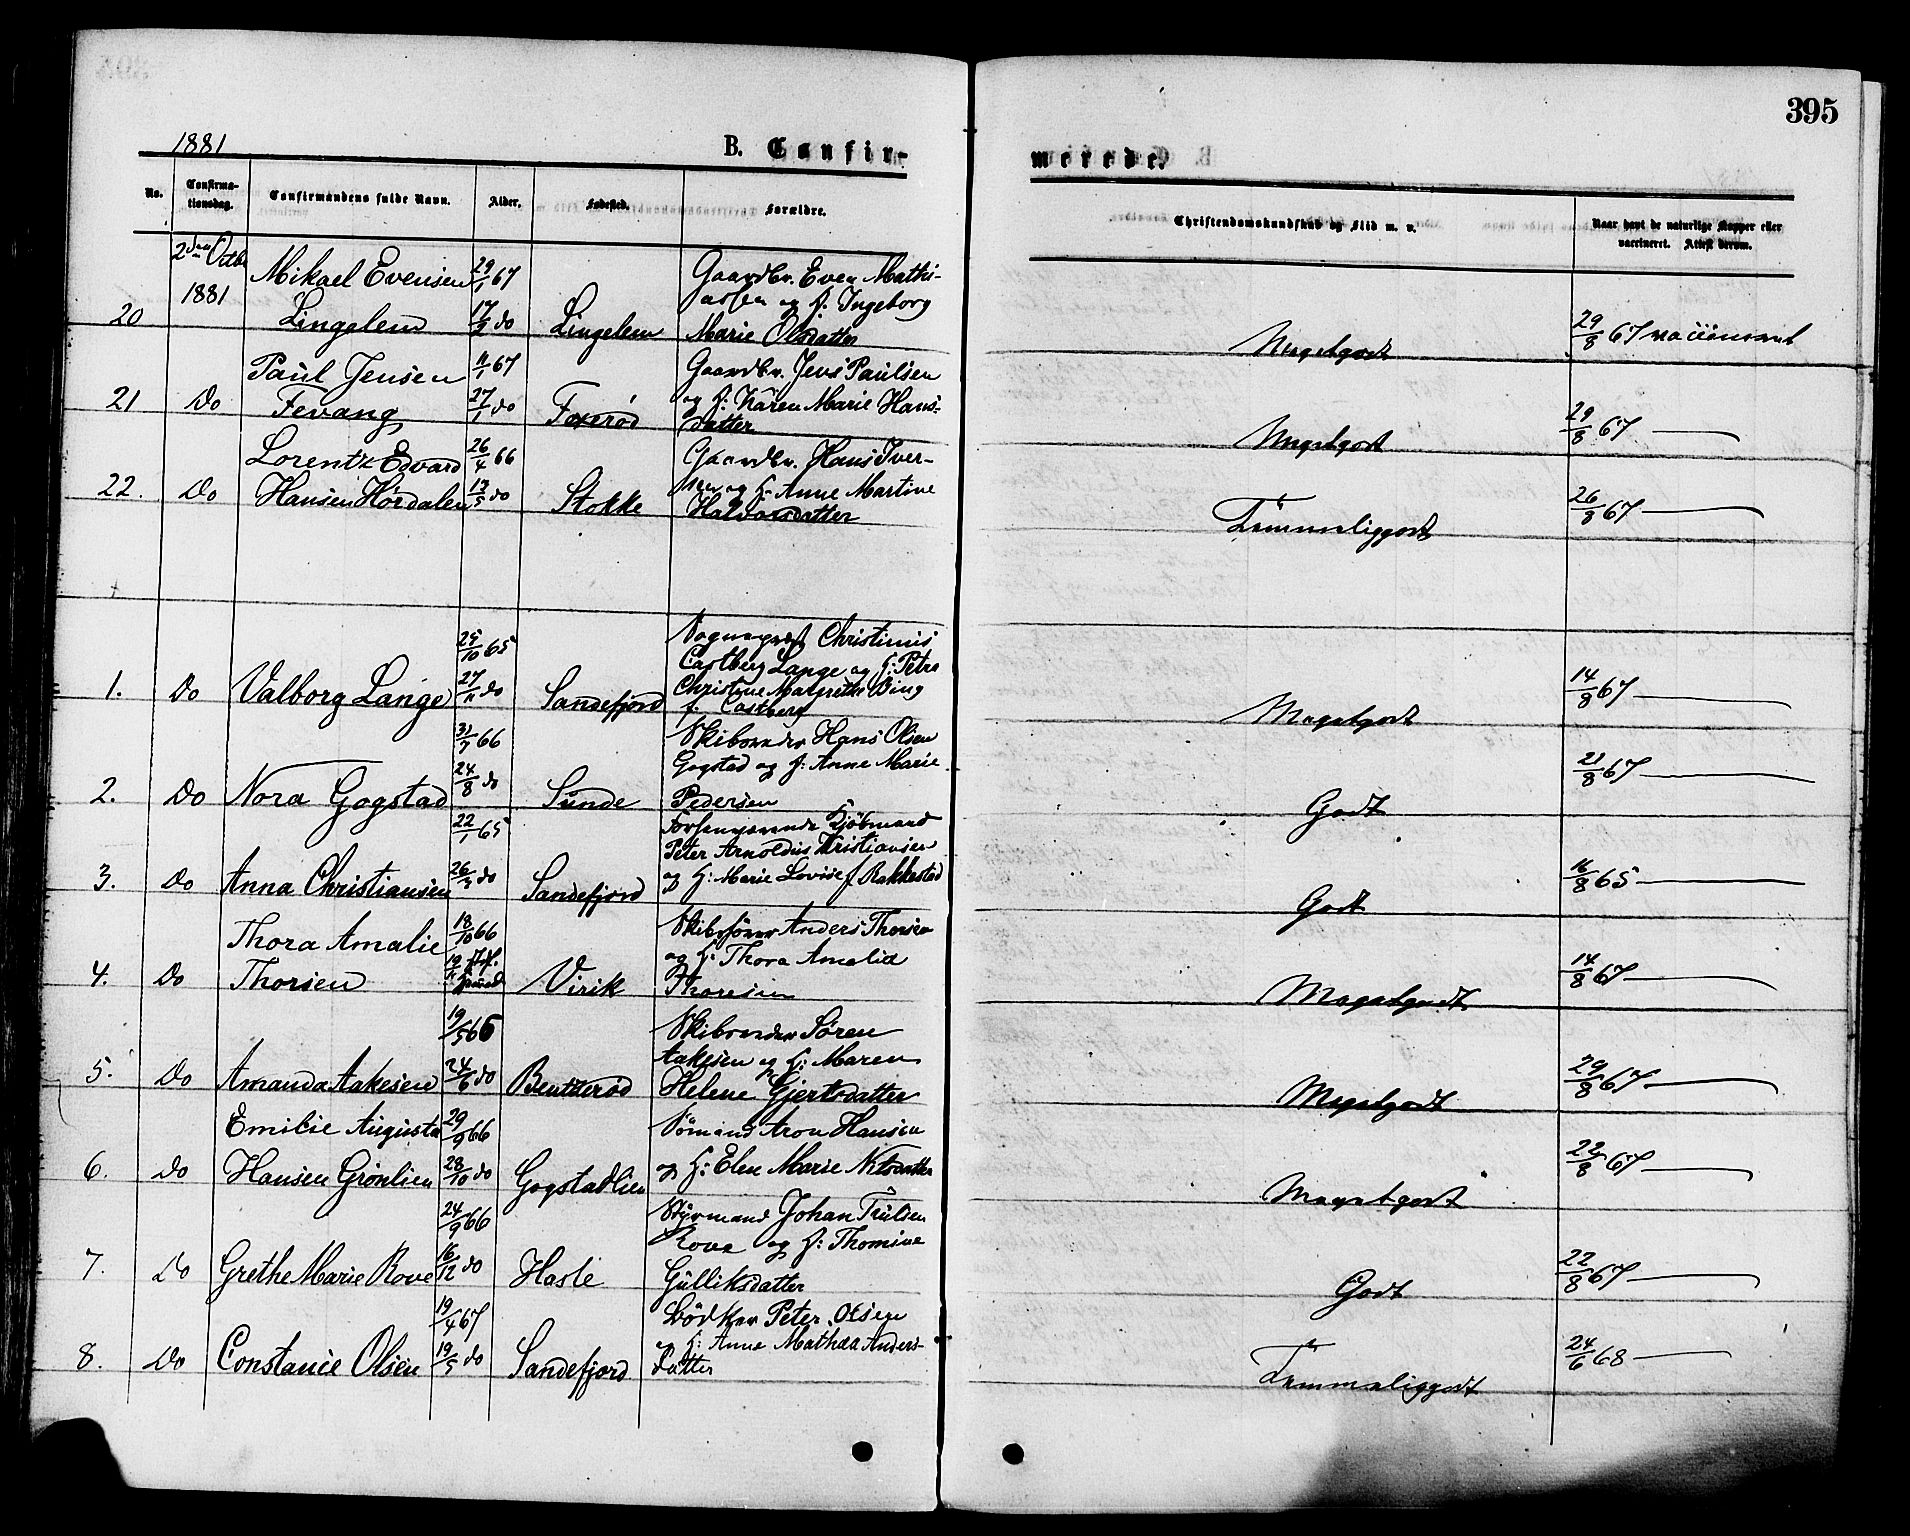 395
1881 B. Confir- merede.
No. Confirma-tionsdag. Confirmandens fulde Navn. Alder. Fødested. Forældre. Christendomskundskab og Flid m. v. Naar havt de naturlige Kopper eller vaccineret. Attest derom.
2den Octbr 1881
Mikael Evensen 29/1 67 Gaardbr. Even Mathi-
assen og H: Ingeborg
20 Lingelem 17/2 do Lingelem Marie Olsdatter Megetgodt 29/8 67 vaccineret
Paul Jensen 11/1 67 Gaardbr. Jens Paulsen
21 Do Fevang 27/1 do Foxerød og H: Karen Marie Hans-
datter Megetgodt 29/8 67 —
Lorentz Edvard 26/4 66 Gaardbr. Hans Iver-
22. Do Hansen Hørdalen 13/5 do Stokke sen og H: Anne Martine
Halvorsdatter Temmeliggodt 26/8 67 —
25/10 65 Sogneprest Christinius
Castberg Lange og H: Petra
1. Do Valborg Lange 27/11 do Sandefjord Christine Margrethe Bing
f. Castberg Megetgodt 14/8 67 —
31/7 66 Skibsreder Hans Olsen
Gogstad og H: Anne Marie
2. Do Nora Gogstad 24/8 do Sunde Pedersen Godt 21/8 67 —
22/1 65 Forhenværende Kjøbmand
Peter Arnoldus Kristiansen
3. Do Anna Christiansen 26/3 do Sandefjord og H: Marie Lovise f. Rakkestad Godt 16/8 65 —
Thora Amalie 18/10 66 Skibsfører Anders Thorsen
og H: Thora Amalia
4. Do Thorsen 19/11 Virik Thoresen Megetgodt 14/8 67 —
19/5 66 Skibsreder Søren
Aakesen og H: Maren
5. Do Amanda Aakesen 24/6 do Bentserød Helene Gjertsdatter Megetgodt 29/8 67 —
Emilie Augusta 29/9 66 Sømand Aron Hansen
6. Do Hansen Grønlien 28/10 do Gogstadlien og H: Elen Marie Nilsdatter Megetgodt 22/8 67 —
24/9 66 Styrmand Johan Trulsen
Rove og H: Thomine
7. Do Grethe Marie Rove 16/12 do Hasle Gulliksdatter Godt 22/8 67 —
19/4 67 Bødker Peter Olsen
og H: Anne Mathea Anders-
8. Do Constance Olsen 19/5 do Sandefjord datter Temmeliggodt 24/6 68 —